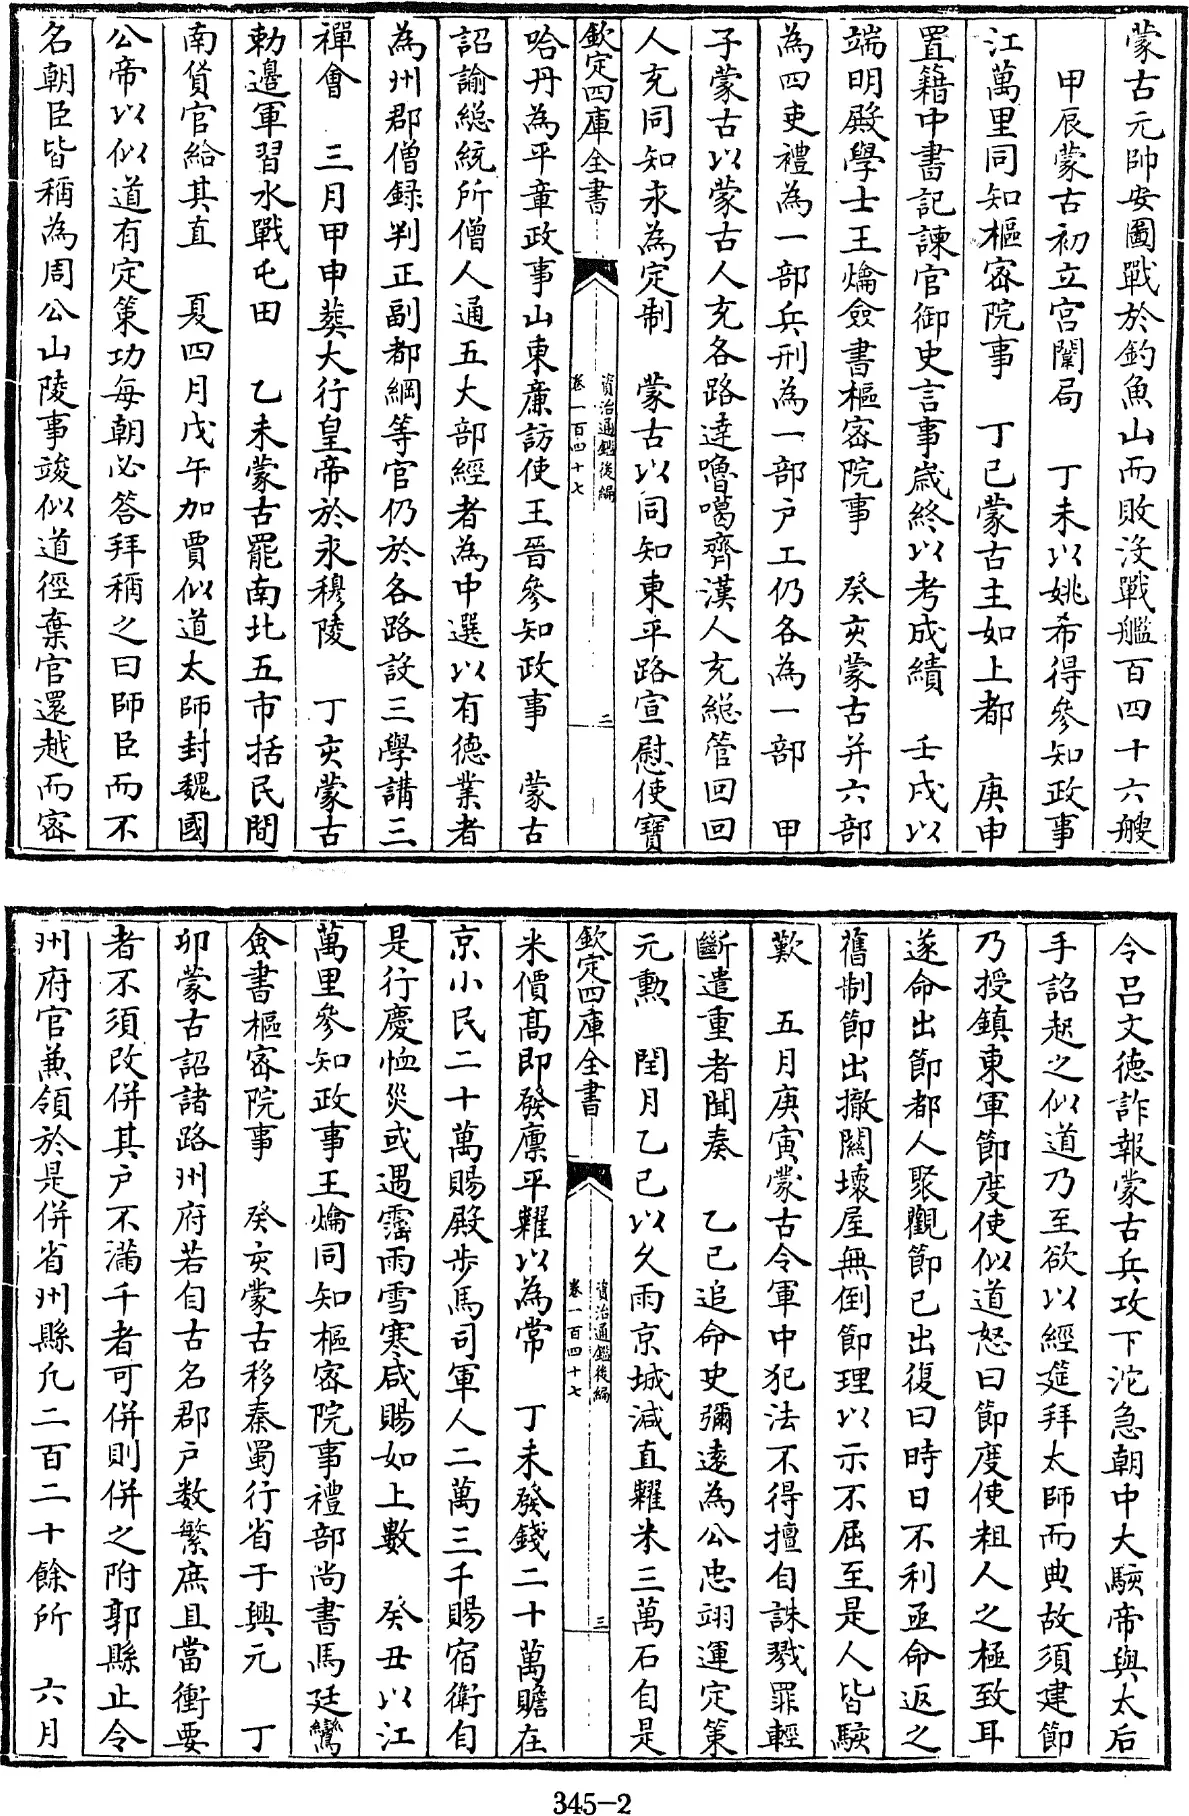 蒙古元帥安圖戰於釣魚山而敗沒戰艦百四十六艘
甲辰蒙古初立宫闈局　丁未以姚希得參知政事
江萬里同知樞宻院事　丁已蒙古主如上都　庚申
置籍中書記諫官御史言事嵗終以考成績　壬戌以
端明殿學士王爚僉書樞宻院事　癸亥蒙古并六部
為四吏禮為一部兵刑為一部户工仍各為一部　甲
子蒙古以蒙古人充各路達嚕噶齊漢人充總管回回
人充同知永為定制　蒙古以同知東平路宣慰使寶
欽定四庫全書
資治通鑑後編
卷一百四十七
二
哈丹為平章政事山東亷訪使王晉參知政事　蒙古
詔諭總統所僧人通五大部經者為中選以有德業者
為州郡僧録判正副都綱等官仍於各路設三學講三
禪會　三月甲申葬大行皇帝於永穆陵　丁亥蒙古
勅邊軍習水戰屯田　乙未蒙古罷南北互市括民間
南貨官給其直　夏四月戊午加賈似道太師封魏國
公帝以似道有定策功每朝必答拜稱之曰師臣而不
名朝臣皆稱為周公山陵事竣似道徑棄官還越而宻
令吕文德詐報蒙古兵攻下沱急朝中大駭帝與太后
手詔起之似道乃至欲以經筵拜太師而典故須建節
乃授鎮東軍節度使似道怒曰節度使粗人之極致耳
遂命出節都人聚觀節已出復曰時日不利亟命返之
舊制節出撤關壞屋無倒節理以示不屈至是人皆駭
歎　五月庚寅蒙古令軍中犯法不得擅自誅戮罪輕
斷遣重者聞奏　乙已追命史彌逺為公忠翊運定策
元勲　閏月乙已以久雨京城減直糶米三萬石自是
欽定四庫全書
資治通鑑後編
卷一百四十七
三
米價髙即發廪平糶以為常　丁未發錢二十萬贍在
京小民二十萬賜殿步馬司軍人二萬三千賜宿衛自
是行慶恤災或遇霪雨雪寒咸賜如上數　癸丑以江
萬里參知政事王爚同知樞宻院事禮部尚書馬廷鸞
僉書樞宻院事　癸亥蒙古移秦蜀行省于興元　丁
卯蒙古詔諸路州府若自古名郡户數繁庶且當衝要
者不須改併其户不滿千者可併則併之附郭縣止令
州府官兼領於是併省州縣凡二百二十餘所　六月
345-2